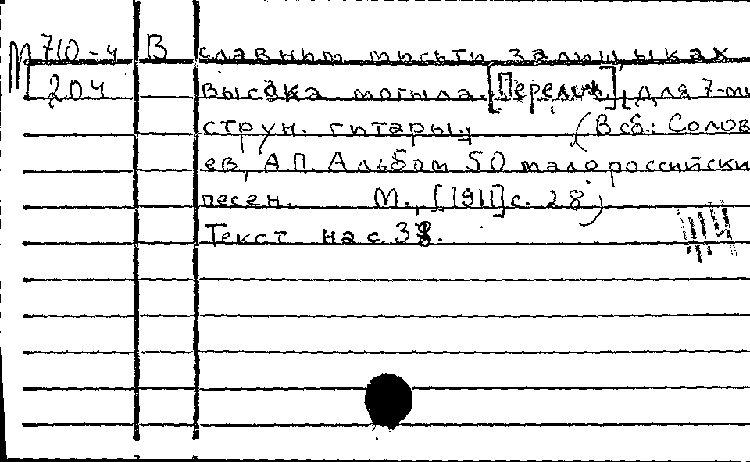 М 710-4 В славним мисьти Залищыках
204 высока могыла. [Перелож.], для 7-ми
струн. гитары. (В сб.: Солов
ев, А П Альбом 50 малороссийски
песен. М., [1911] с. 28)
Текст на с 38.